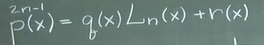 2n-1
p(x) = q(x) Ln(x) + r(x)